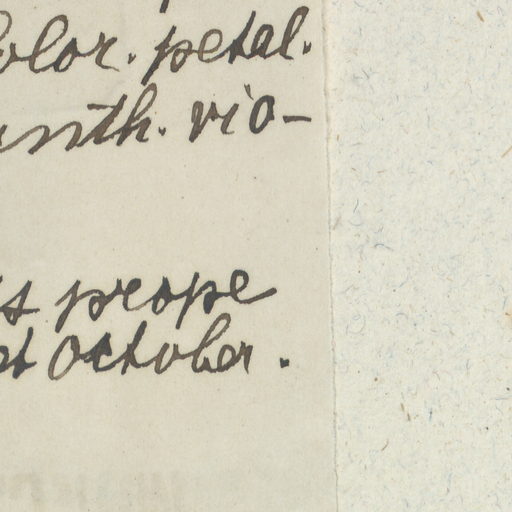 color. petal.
anth. vio-
prope
October.